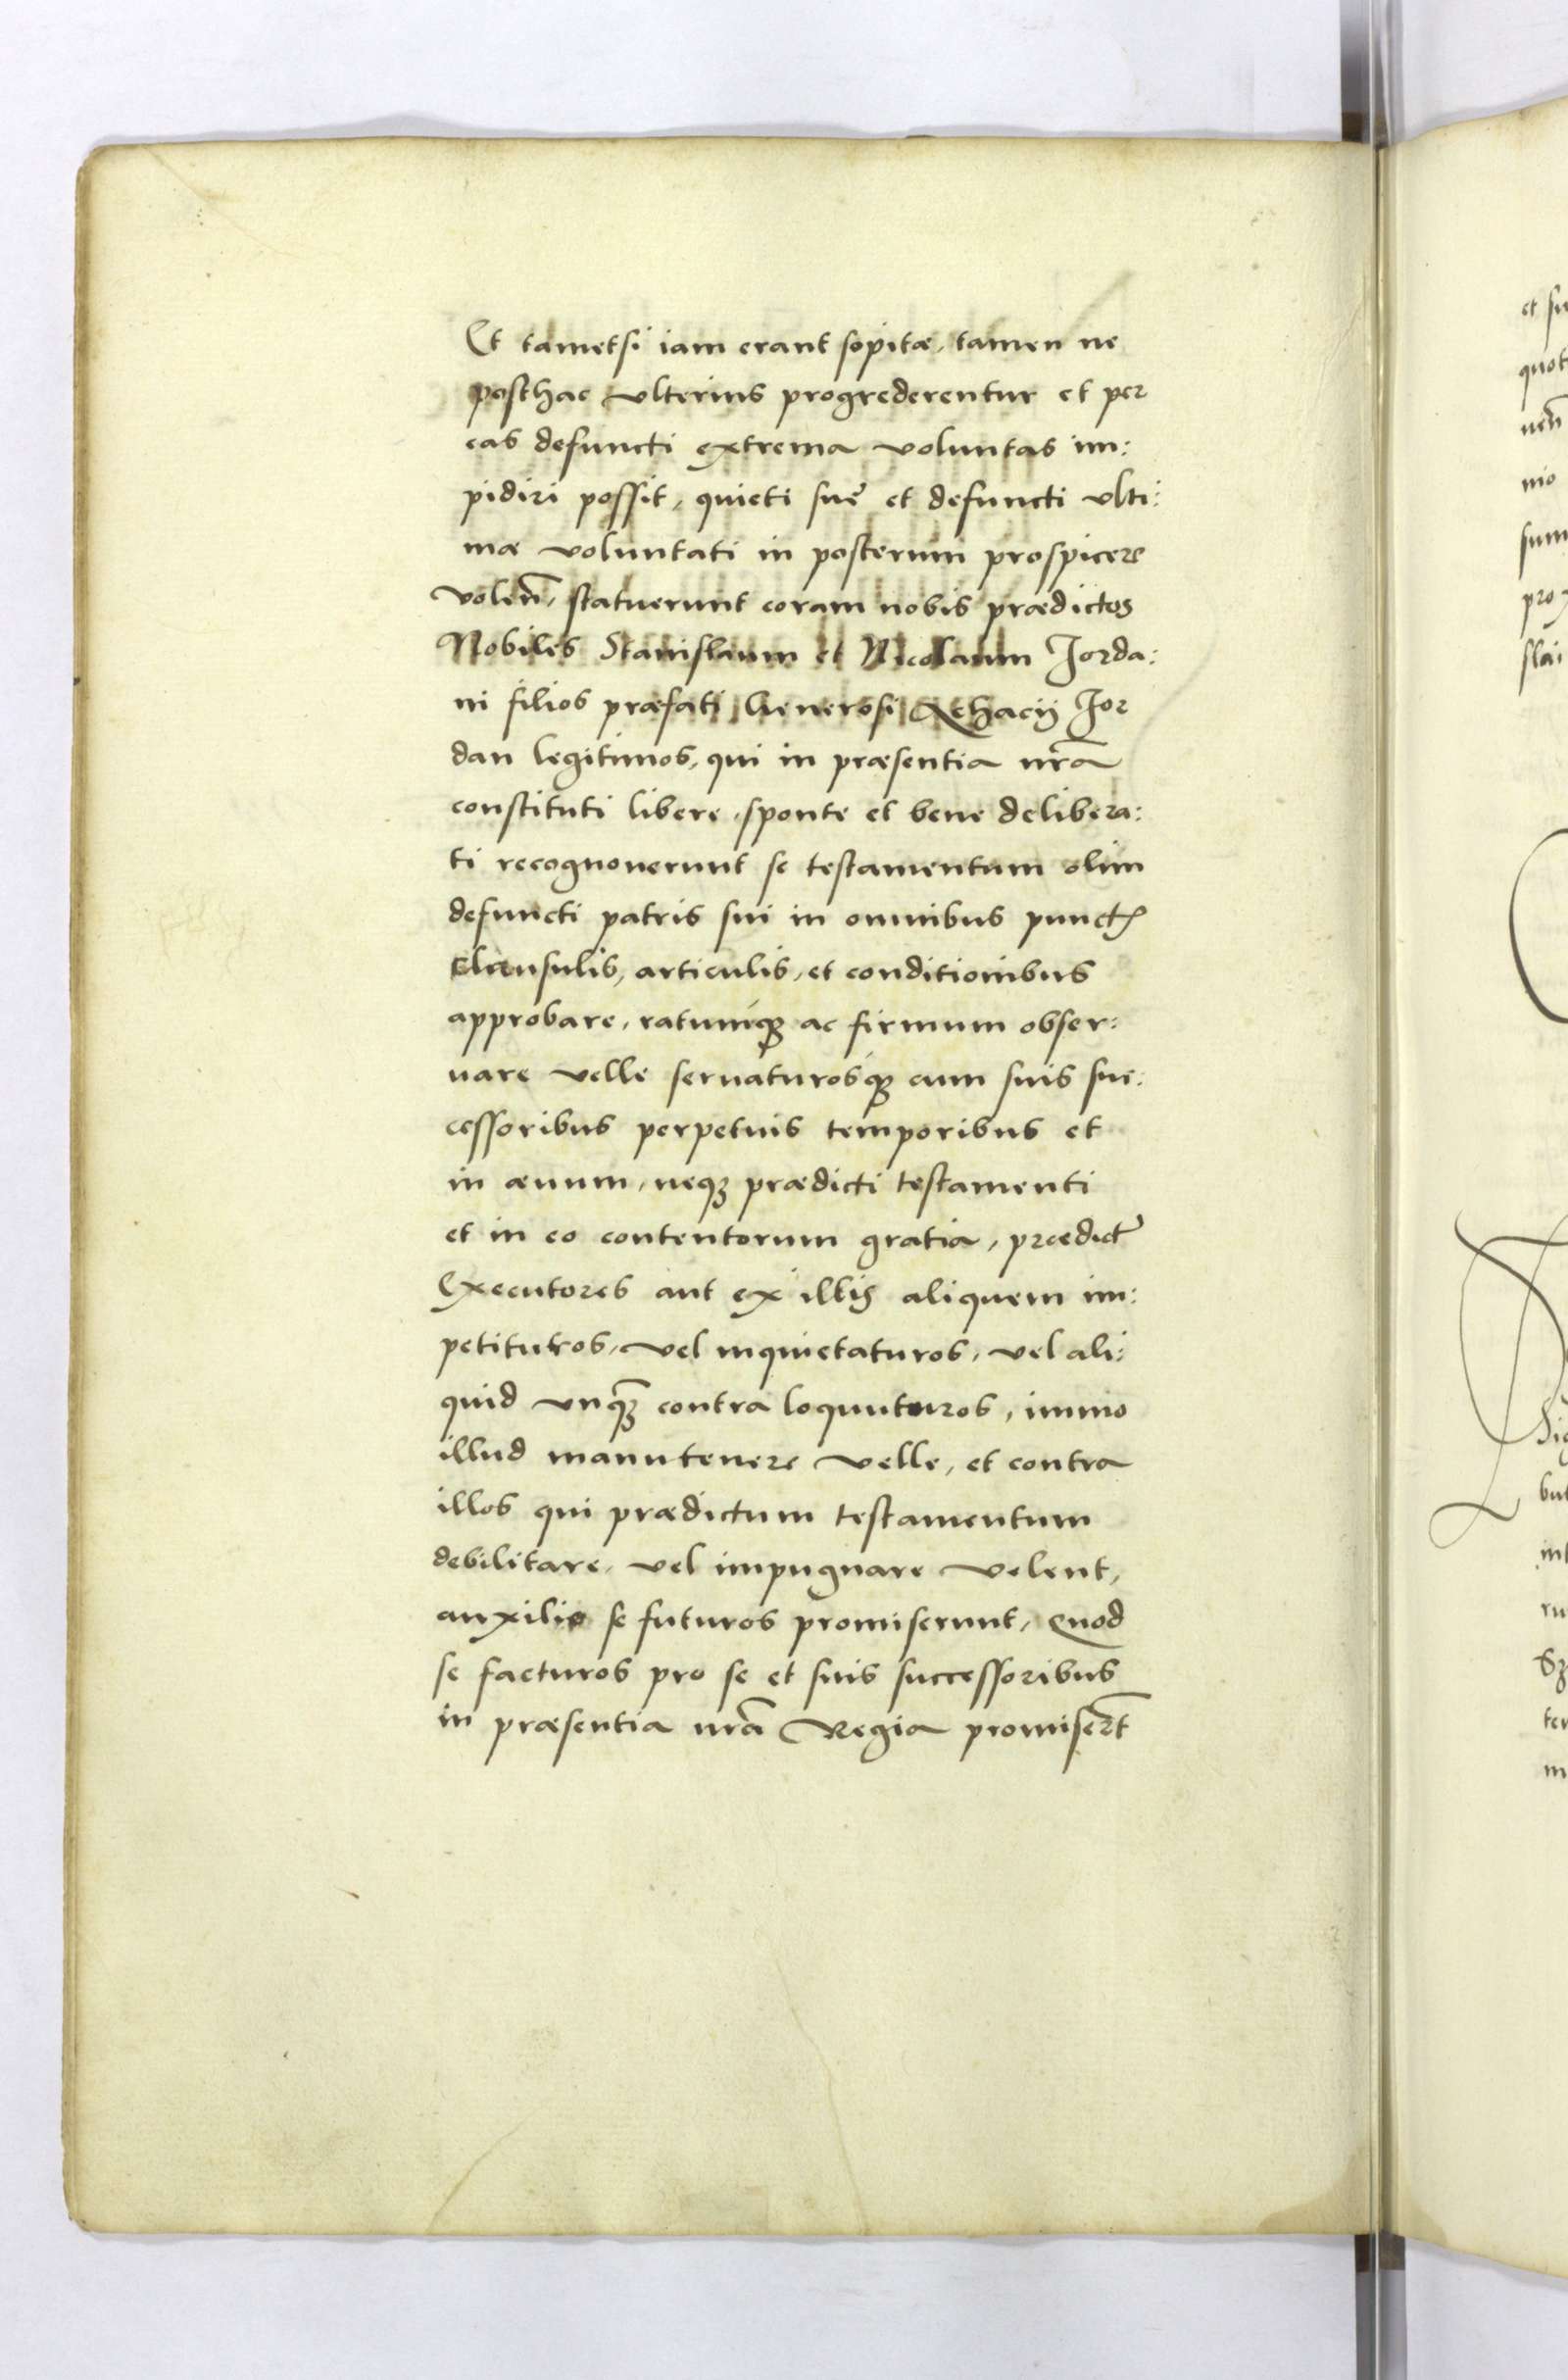 Et tametsi iam erant sopitæ, tamen ne
posthac vlterius progrederentur et per
eas defuncti extrema voluntas im:
pidiri possit, quieti sue et defuncti vlti:
mæ voluntati in posterum prospicere
volen̄, statuerunt coram nobis prædictos
Nobiles Stanislaum et Nicolaum Jorda:
ni filios præfati Generosi Achacij Jor
dan legitimos, qui in præsentia nr̄a
constituti libere, sponte et bene delibera:
ti recognouerunt se testamentum olim
defuncti patris sui in omnibus punctꝭ
clausulis, articulis, et conditionibus
approbare, ratumqꝫ ac firmum obser:
uare velle seruaturosqꝫ cum suis suc:
cessoribus perpetuis temporibus et
in æuum, neqꝫ prædicti testamenti
et in eo contentorum gratia, prædict̄
Executores aut ex illis aliquem im:
petituros, vel inquietaturos, vel ali:
quid vnq̄ꝫ contra loquuturos, immo
illud manutenere velle, et contra
illos qui prædictum testamentum
debilitare, vel impugnare velent,
auxilio se futuros promiserunt, Quod
se facturos pro se et suis successoribus
in præsentia nr̄a Regia promiser̄t
et su
quot
uen̄
nio
sum
prox
slai
Sig
but
int
ru
Sz
ter
m